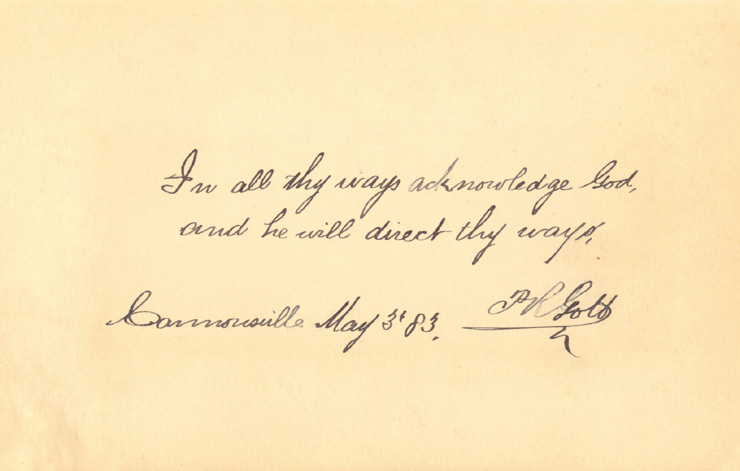 In all thy ways acknowledge God,
and he will direct thy ways,
Cannonsville May 3' 83.